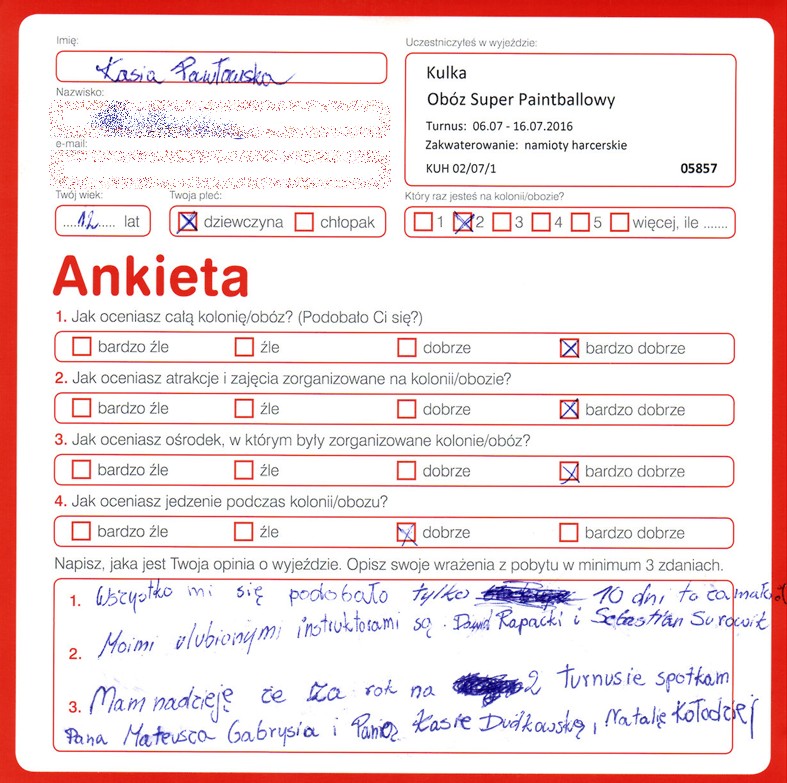 Imię:
Kasia Pawłowska
Uczestniczyłeś w wyjeździe:
Kulka
Obóz Super Paintballowy
Turnus: 06.07 - 16.07.2016
Zakwaterowanie: namioty harcerskie
KUH 02/07/1 05857
Nazwisko:
e-mail:
Twój wiek: Twoja płeć: Który raz jesteś na kolonii/obozie?
....12..... lat dziewczyna chłopak 1 2 3 4 5 więcej, ile .......
Ankieta
1. Jak oceniasz całą kolonię/obóz? (Podobało Ci się?)
bardzo źle źle dobrze bardzo dobrze
2. Jak oceniasz atrakcje i zajęcia zorganizowane na kolonii/obozie?
bardzo źle źle dobrze bardzo dobrze
3. Jak oceniasz ośrodek, w którym były zorganizowane kolonie/obóz?
bardzo źle źle dobrze bardzo dobrze
4. Jak oceniasz jedzenie podczas kolonii/obozu?
bardzo źle źle dobrze bardzo dobrze
Napisz, jaka jest Twoja opinia o wyjeździe. Opisz swoje wrażenia z pobytu w minimum 3 zdaniach.
1. Wszystko mi się podobało tylko 10 dni to za mało
2. Moimi ulubionymi instruktorami są Dawid Rapacki i Sebastian Surowik
3. Mam nadzieję że za rok na 2 turnusie spotkam
Pana Mateusza Gabrysia i Panią Kasię Dudkowską, Natalię Kołodziej